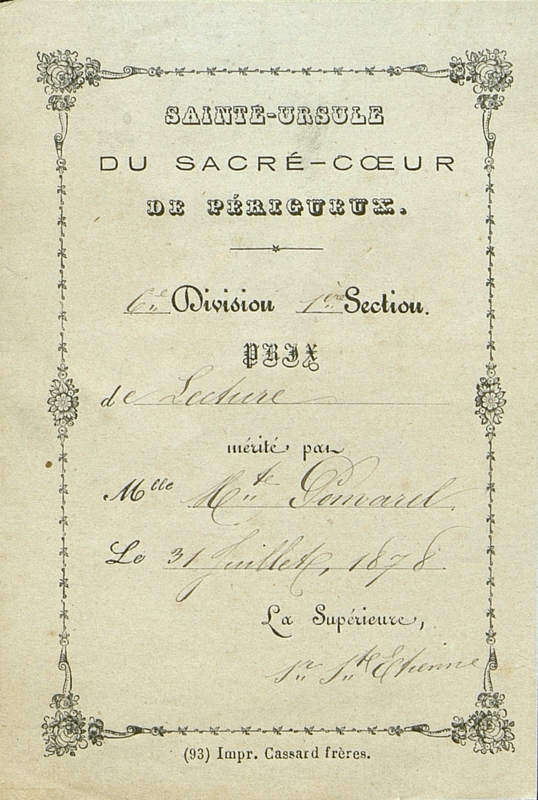 SAINTE-URSULE
DU SACRÉ-CŒUR
DE PÉRIGUEUX.
6e Division 1ère Section.
PRIX
de Lecture
mérité par
Mlle Mte Pomarel
Le 31 Juillet, 1878.
La Supérieure,
Sr Ste Etienne
(93) Impr. Cassard frères.